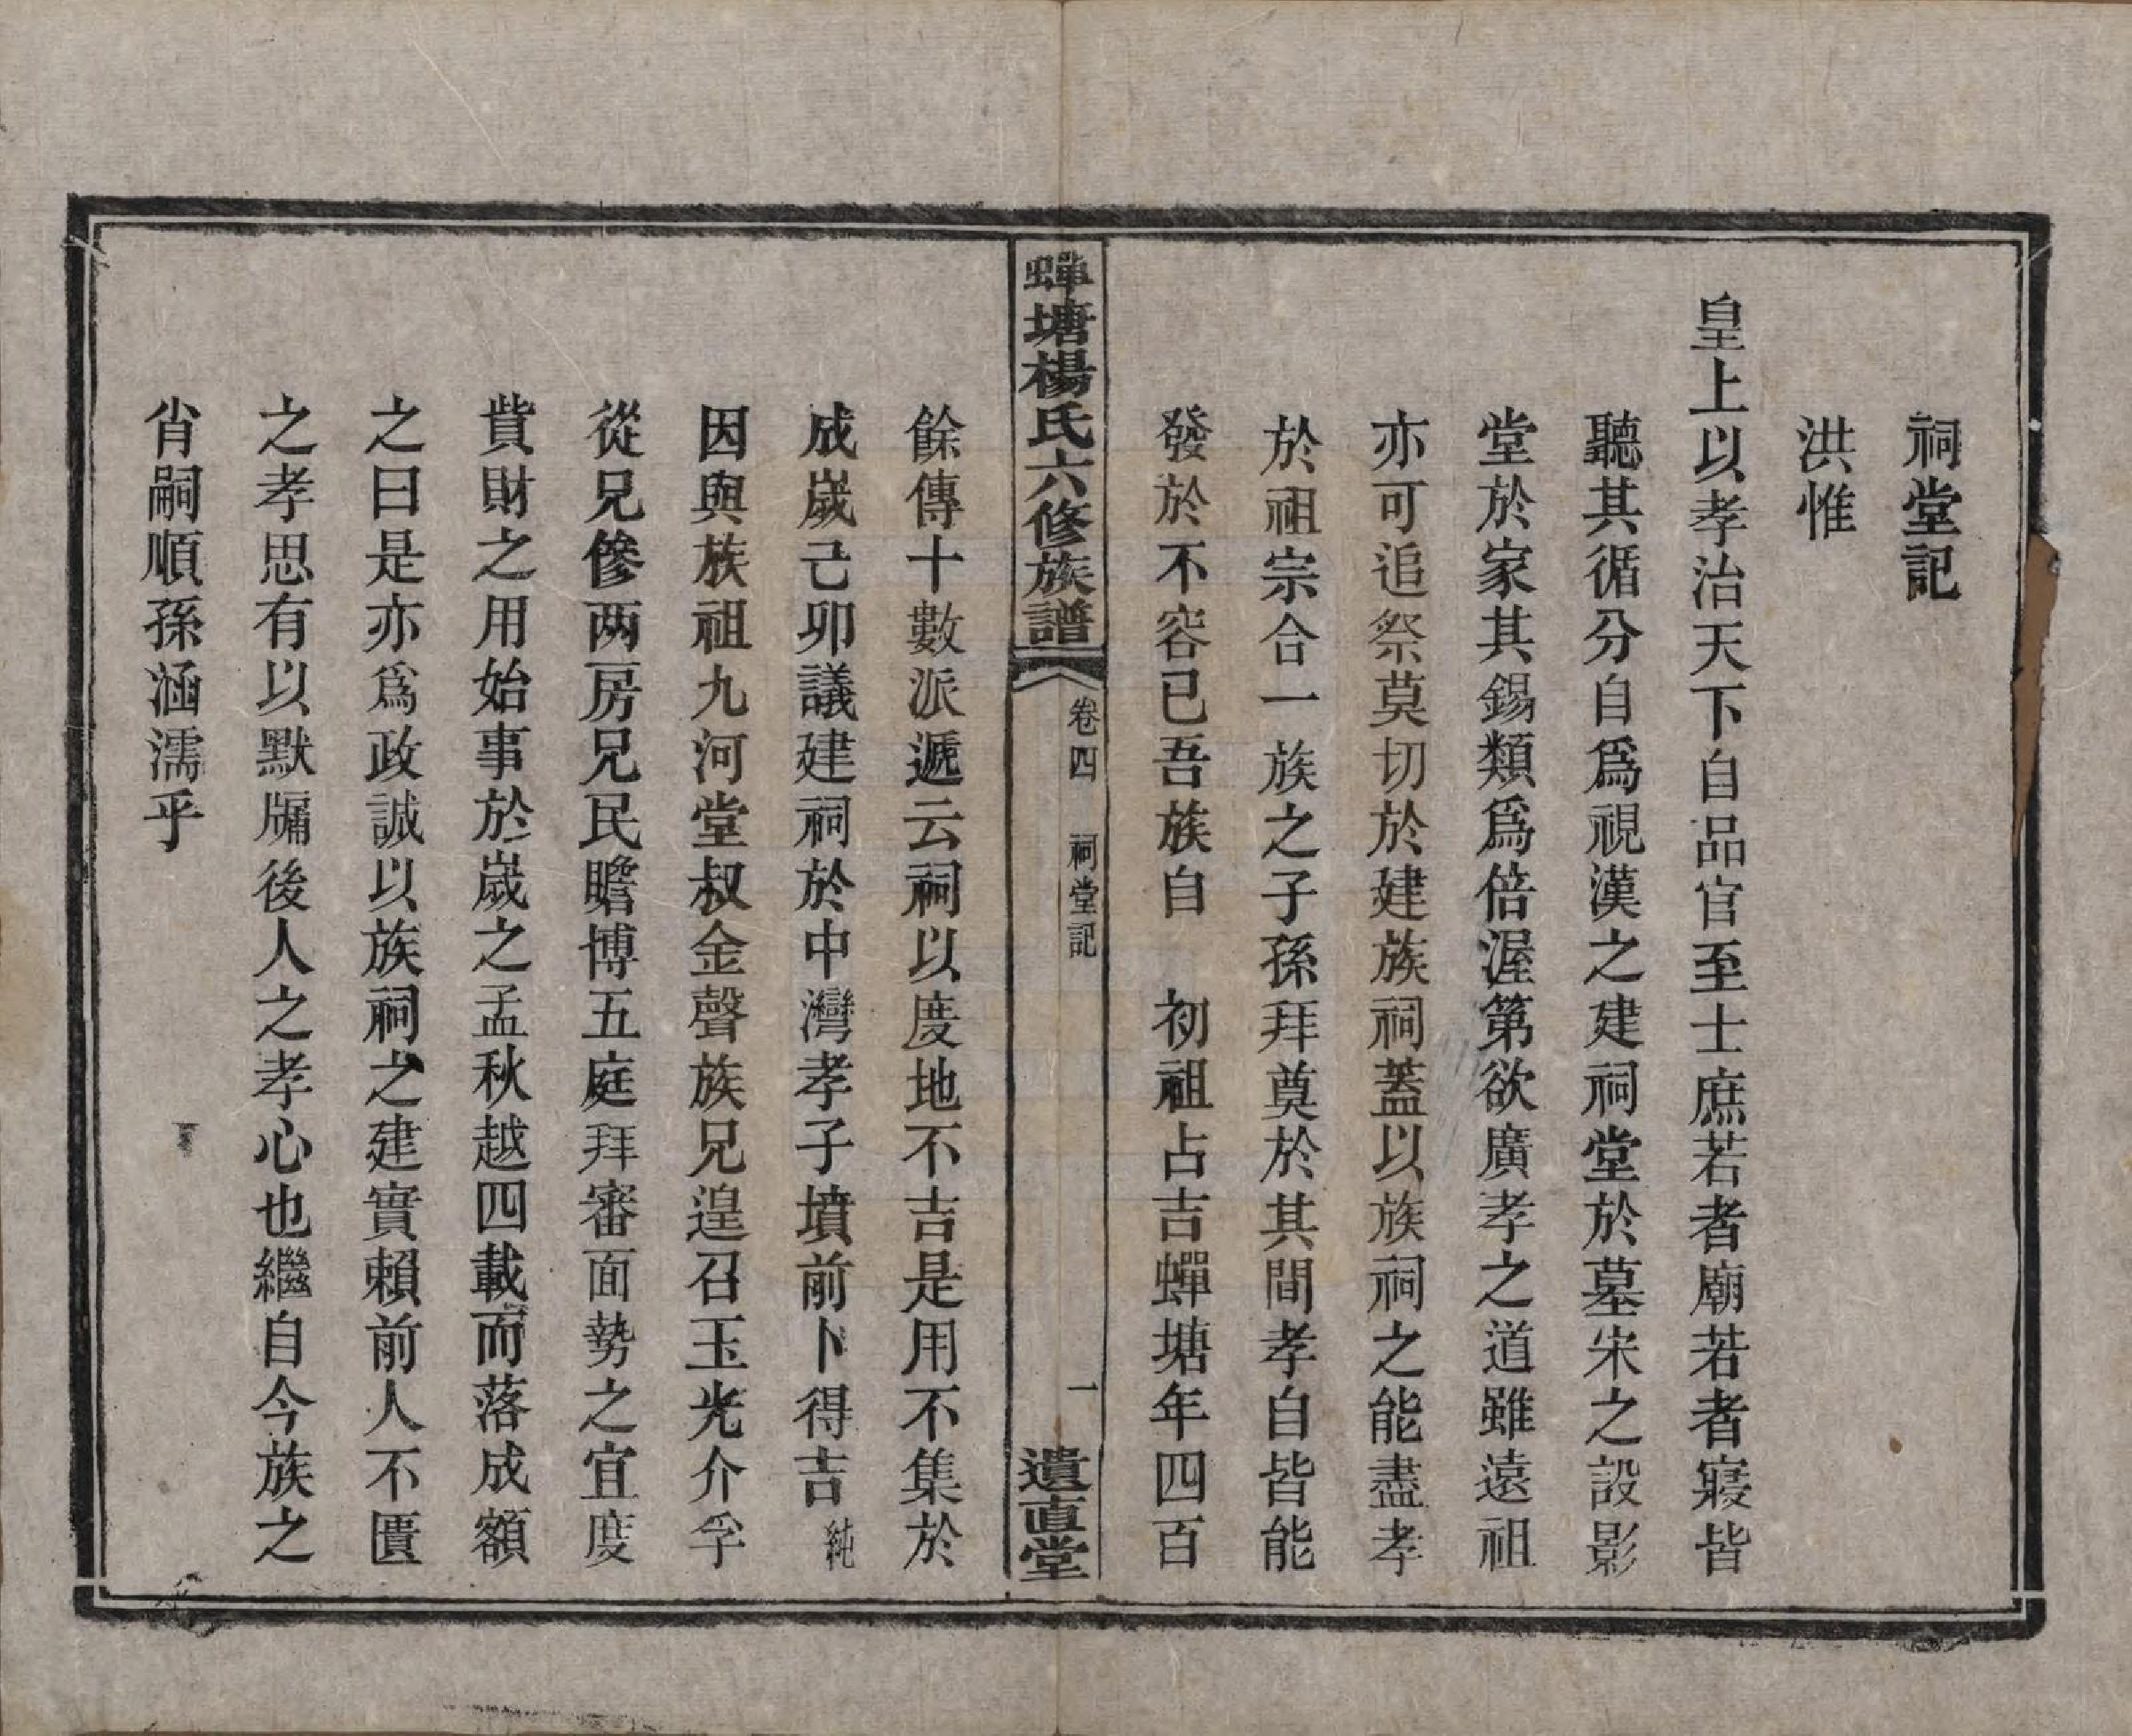 祠堂記
洪惟
皇上以孝治天下自品官至士庶若者廟若者寢皆
聽其循分自爲視漢之建祠堂於墓宋之設影
堂於家其錫類爲倍渥第欲廣孝之道雖遠祖
亦可追祭莫切於建族祠蓋以族祠之能盡孝
於祖宗合一族之子孫拜奠於其間孝自皆能
發於不容已吾族自　初祖占吉蟬塘年四百
蟬塘楊氏六修族譜　卷四　祠堂記　一　遺直堂
餘傳十數派遞云祠以度地不吉是用不集於
成歲己卯議建祠於中灣孝子墳前卜得吉純
因與族祖九河堂叔金聲族兄遑召玉光介孚
從兄修两房兄民瞻博五庭拜審面勢之宜度
貲財之用始事於歲之孟秋越四載而落成額
之曰是亦爲政誠以族祠之建實賴前人不匱
之孝思有以默牖後人之孝心也繼自今族之
肖嗣順孫涵濡乎